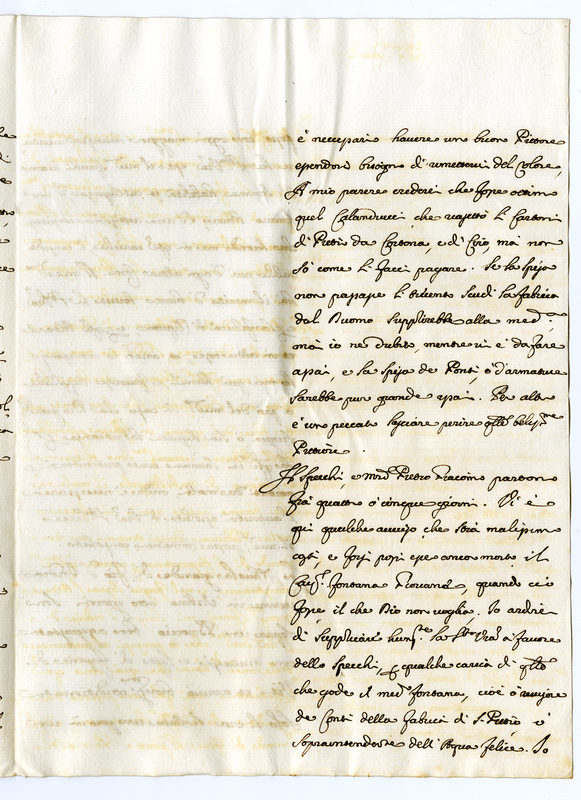 è necessario havere un buon Pittore
essendovi bisogno di rimettervi del Colore,
A mio parere crederei che fosse ottimo
quel Calanducci, che rassettò li Cartoni
di Pietro da Cortona, e di Ciro, mà non
sò come li facci pagare. Se la spesa
non passasse li ducento scudi la fabrica
del Duomo supplirebbe alla med.ma
mà io ne dubito, mentre vi è da fare
assai, e la spesa de Ponti, ò d'armature
sarebbe pur grande assai. Per altro
è un peccato lasciare perire q.lle belliss.me
Pitture.
Il Specchi, e m.ro Pietro Giacomo partono
frà quattro ò cinque giorni. Vi è
qui qualche avviso che stia malissimo
costì, e forsi possi esser ancor morto il
Cav. Fontana, quando ciò
fosse, il che Dio non voglia, Io ardirei
di supplicare hum.te la V.ra à favore
dello Specchi, p qualche carica di q.lle
che gode il med.mo Fontana, cioè ò revisore
de Conti della fabrica di S. Pietro è
Sopraintendente dell'Acqua felice. Io